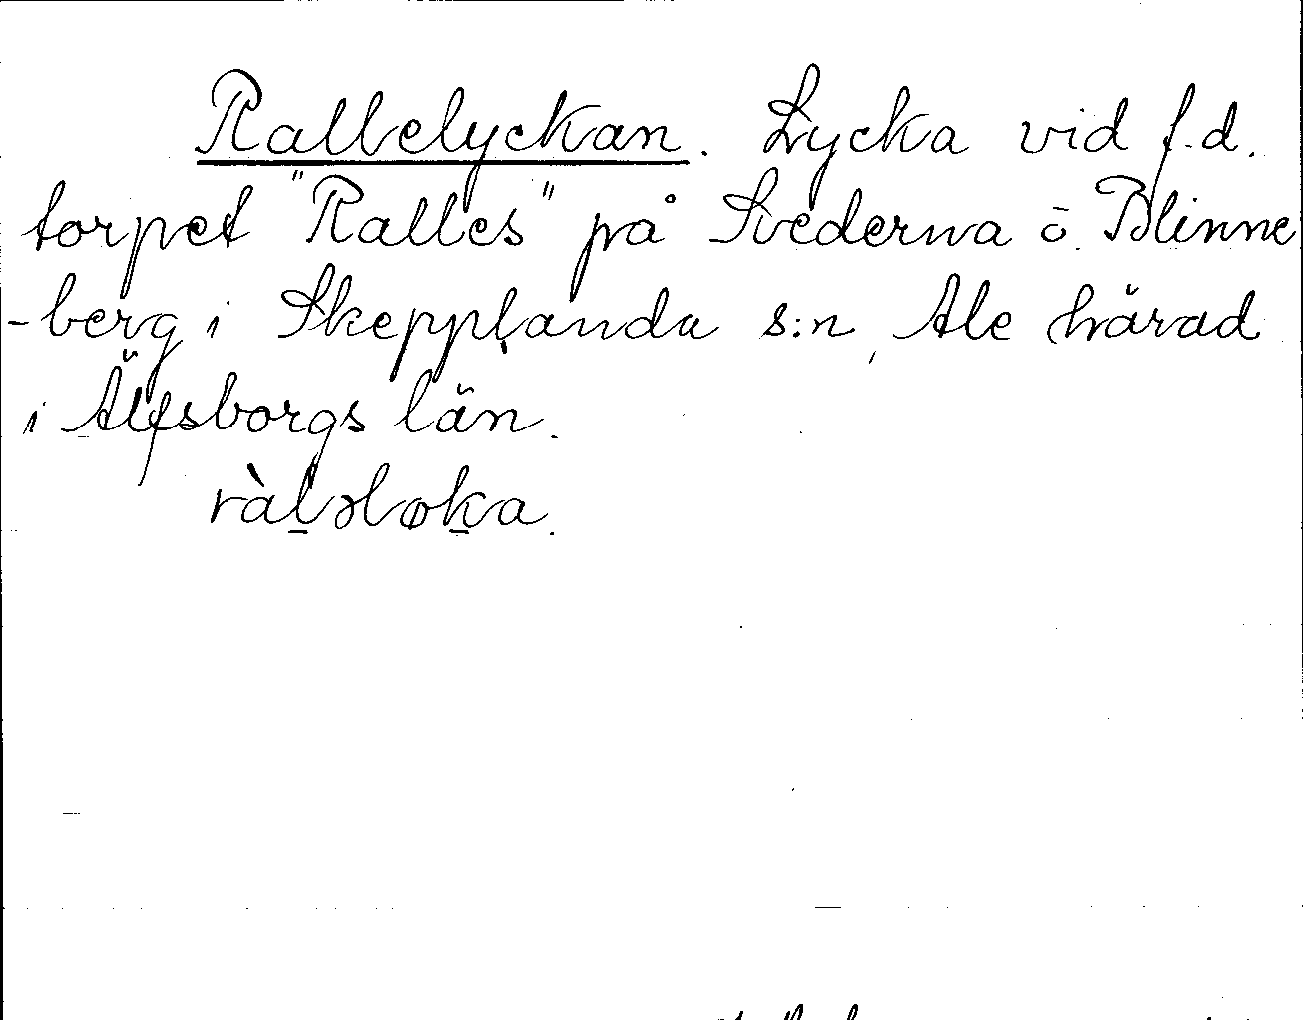 Rallelyckan. Lycka vid f.d.
torpet "Ralles" på Svederna ö. Blinne
-berg i Skepplanda s:n, Ale härad
i Älfsborgs län.
ràl̠əløk̠a.